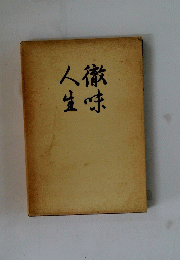 徹味
人生